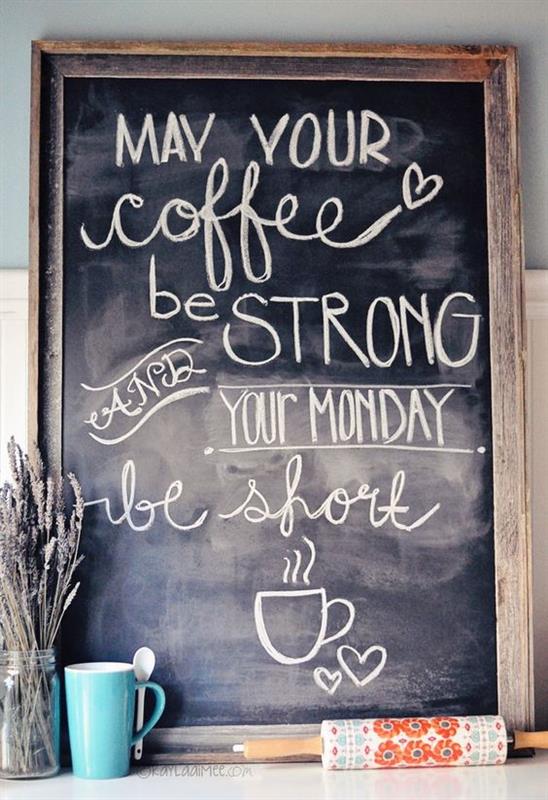 MAY YOUR
coffee
be STRONG
AND
YOUr MONDAY
be short
©KAYLAAIMEE.COM